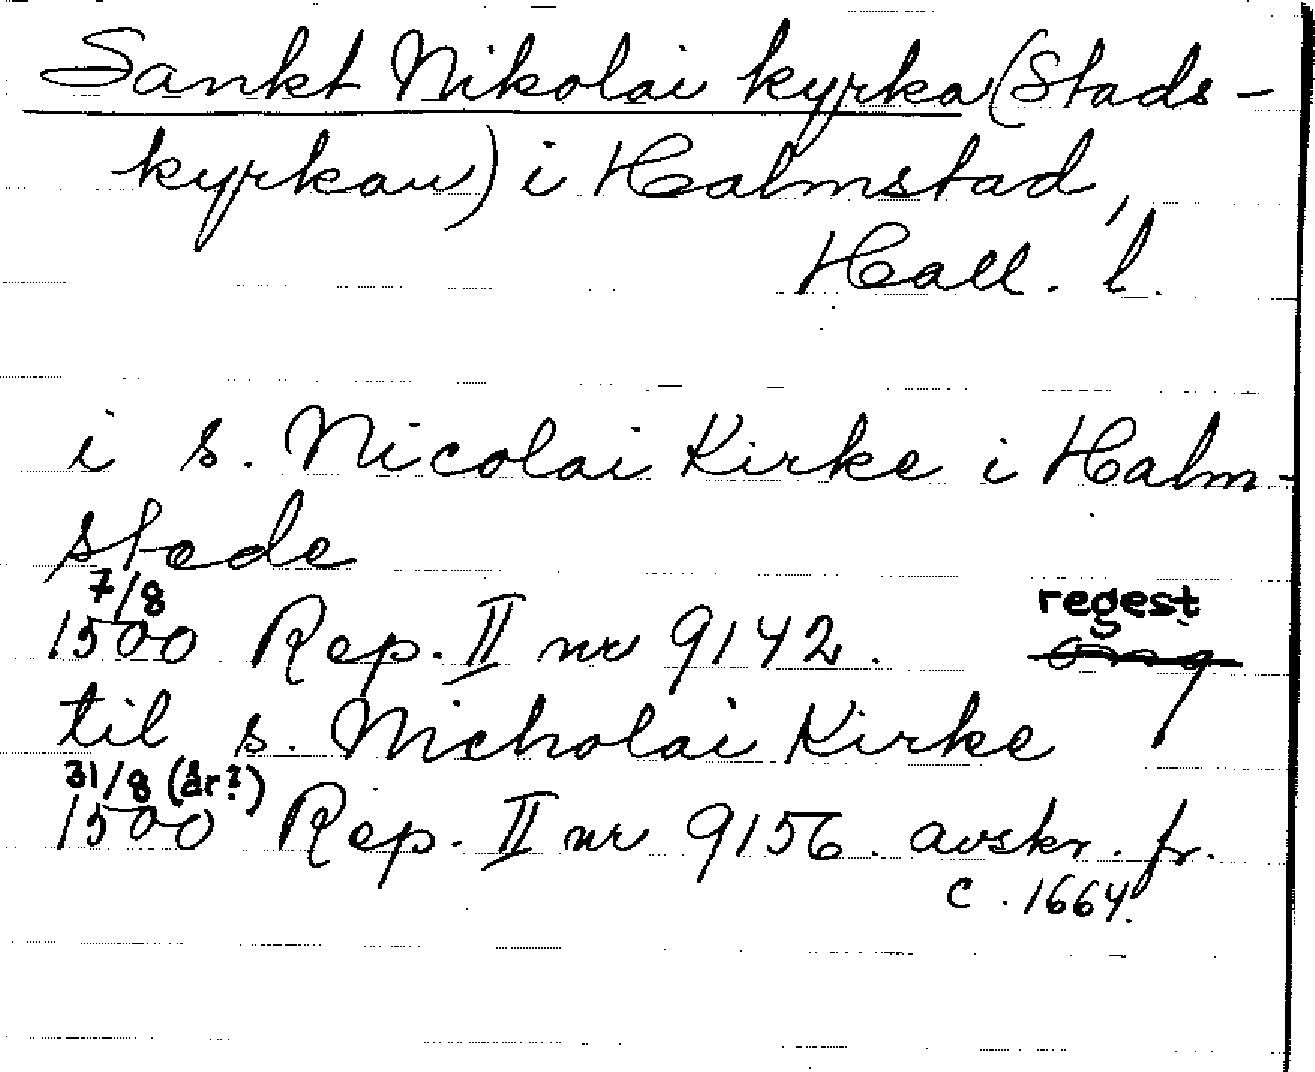 Sankt Nikolai kyrka (Stads-
kyrkan) i Halmstad,
Hall. l.
i s. Nicolai Kirke i Halm-
stede
7/8
1500 Rep. II nr 9142. regest
til s. Nicholai Kirke
31/8 (år?)
1500 Rep. II nr 9156. avskr. fr.
c. 1664.